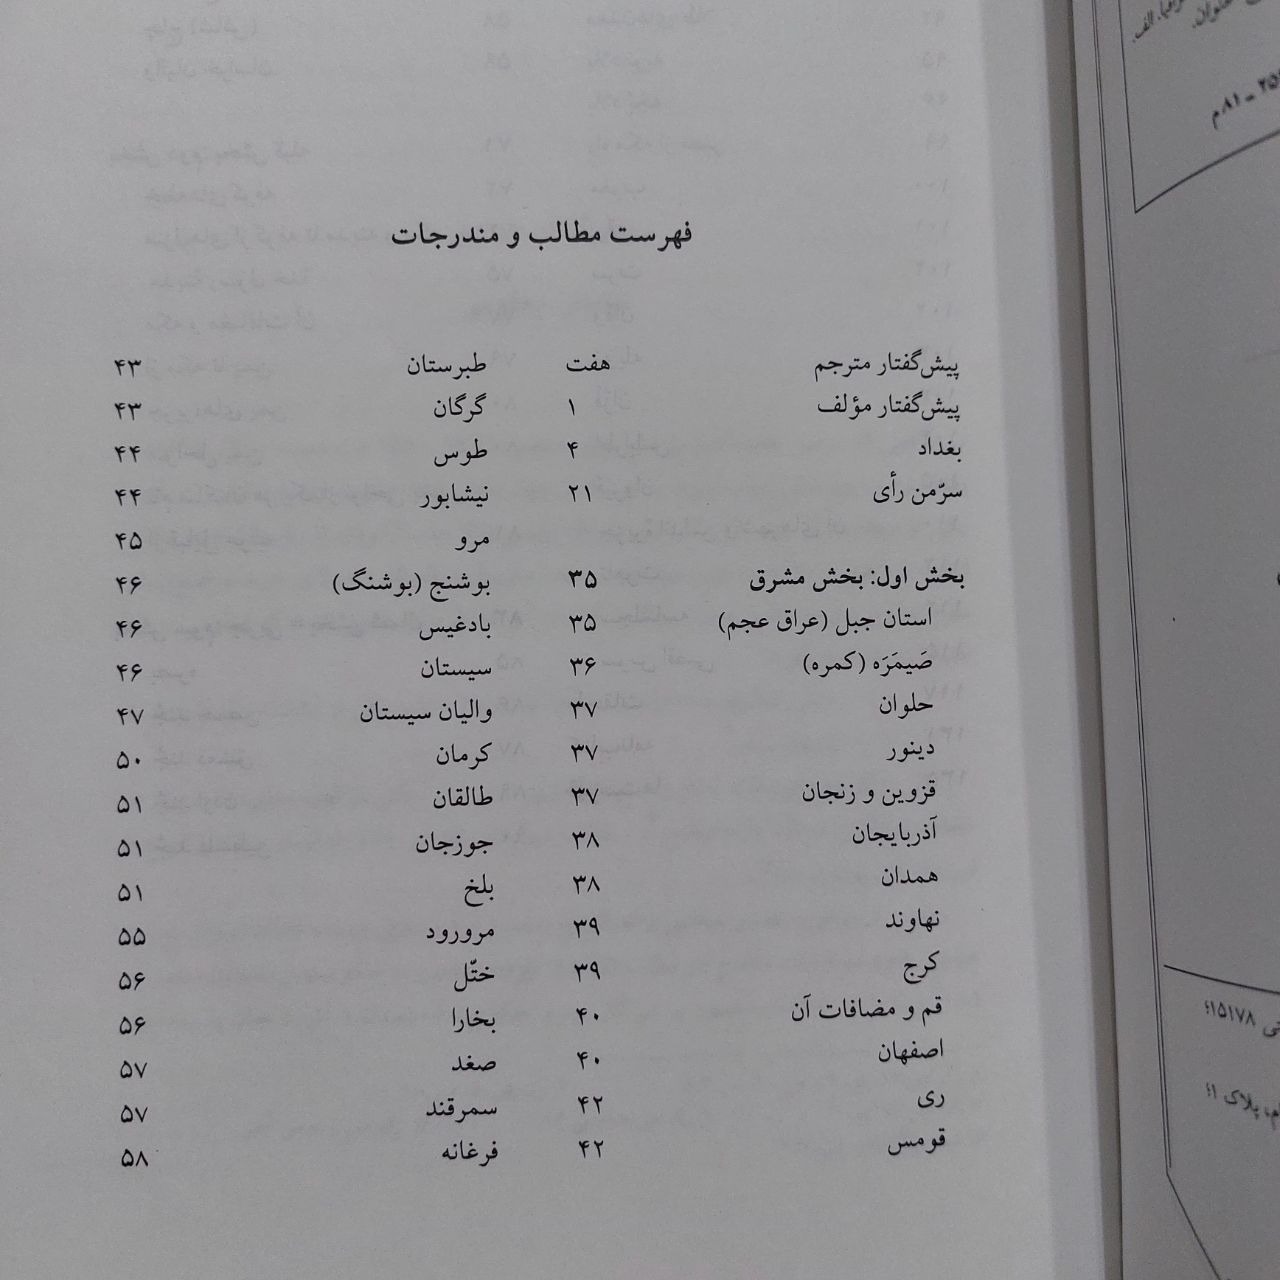 فهرست مطالب و مندرجات
پیش‌گفتار مترجم هفت
پیش‌گفتار مؤلف ۱
بغداد ۴
سرّمن رأی ۲۱
بخش اول: بخش مشرق ۳۵
استان جبل (عراق عجم) ۳۵
صَیمَرَه (کمره) ۳۶
حلوان ۳۷
دینور ۳۷
قزوین و زنجان ۳۷
آذربایجان ۳۸
همدان ۳۸
نهاوند ۳۹
کرج ۳۹
قم و مضافات آن ۴۰
اصفهان ۴۰
ری ۴۲
قومس ۴۲
طبرستان ۴۳
گرگان ۴۳
طوس ۴۴
نیشابور ۴۴
مرو ۴۵
بوشنج (بوشنگ) ۴۶
بادغیس ۴۶
سیستان ۴۶
والیان سیستان ۴۷
کرمان ۵۰
طالقان ۵۱
جوزجان ۵۱
بلخ ۵۱
مرورود ۵۵
ختّل ۵۶
بخارا ۵۶
صغد ۵۷
سمرقند ۵۷
فرغانه ۵۸
حلوان.
۸۱م
۱۵۱۷۸؛
پلاک ۱؛